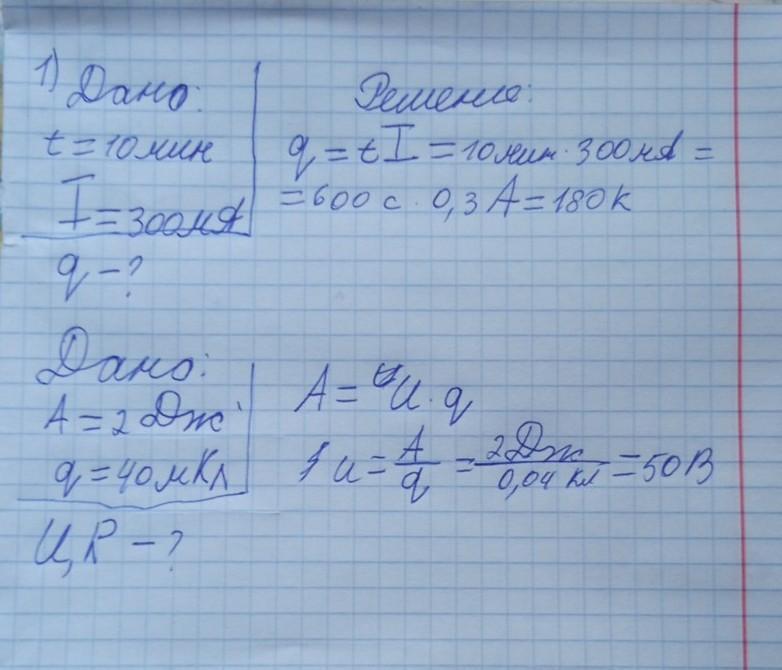 1) Дано:
t = 10 мин
I = 300 мА
q - ?
Решение:
q = tI = 10 мин · 300 мА =
= 600 с · 0,3 А = 180 к
Дано:
A = 2 Дж
q = 40 мКл
U, R - ?
A = U · q
u = A/q = 2 Дж/0,04 кл = 50 В